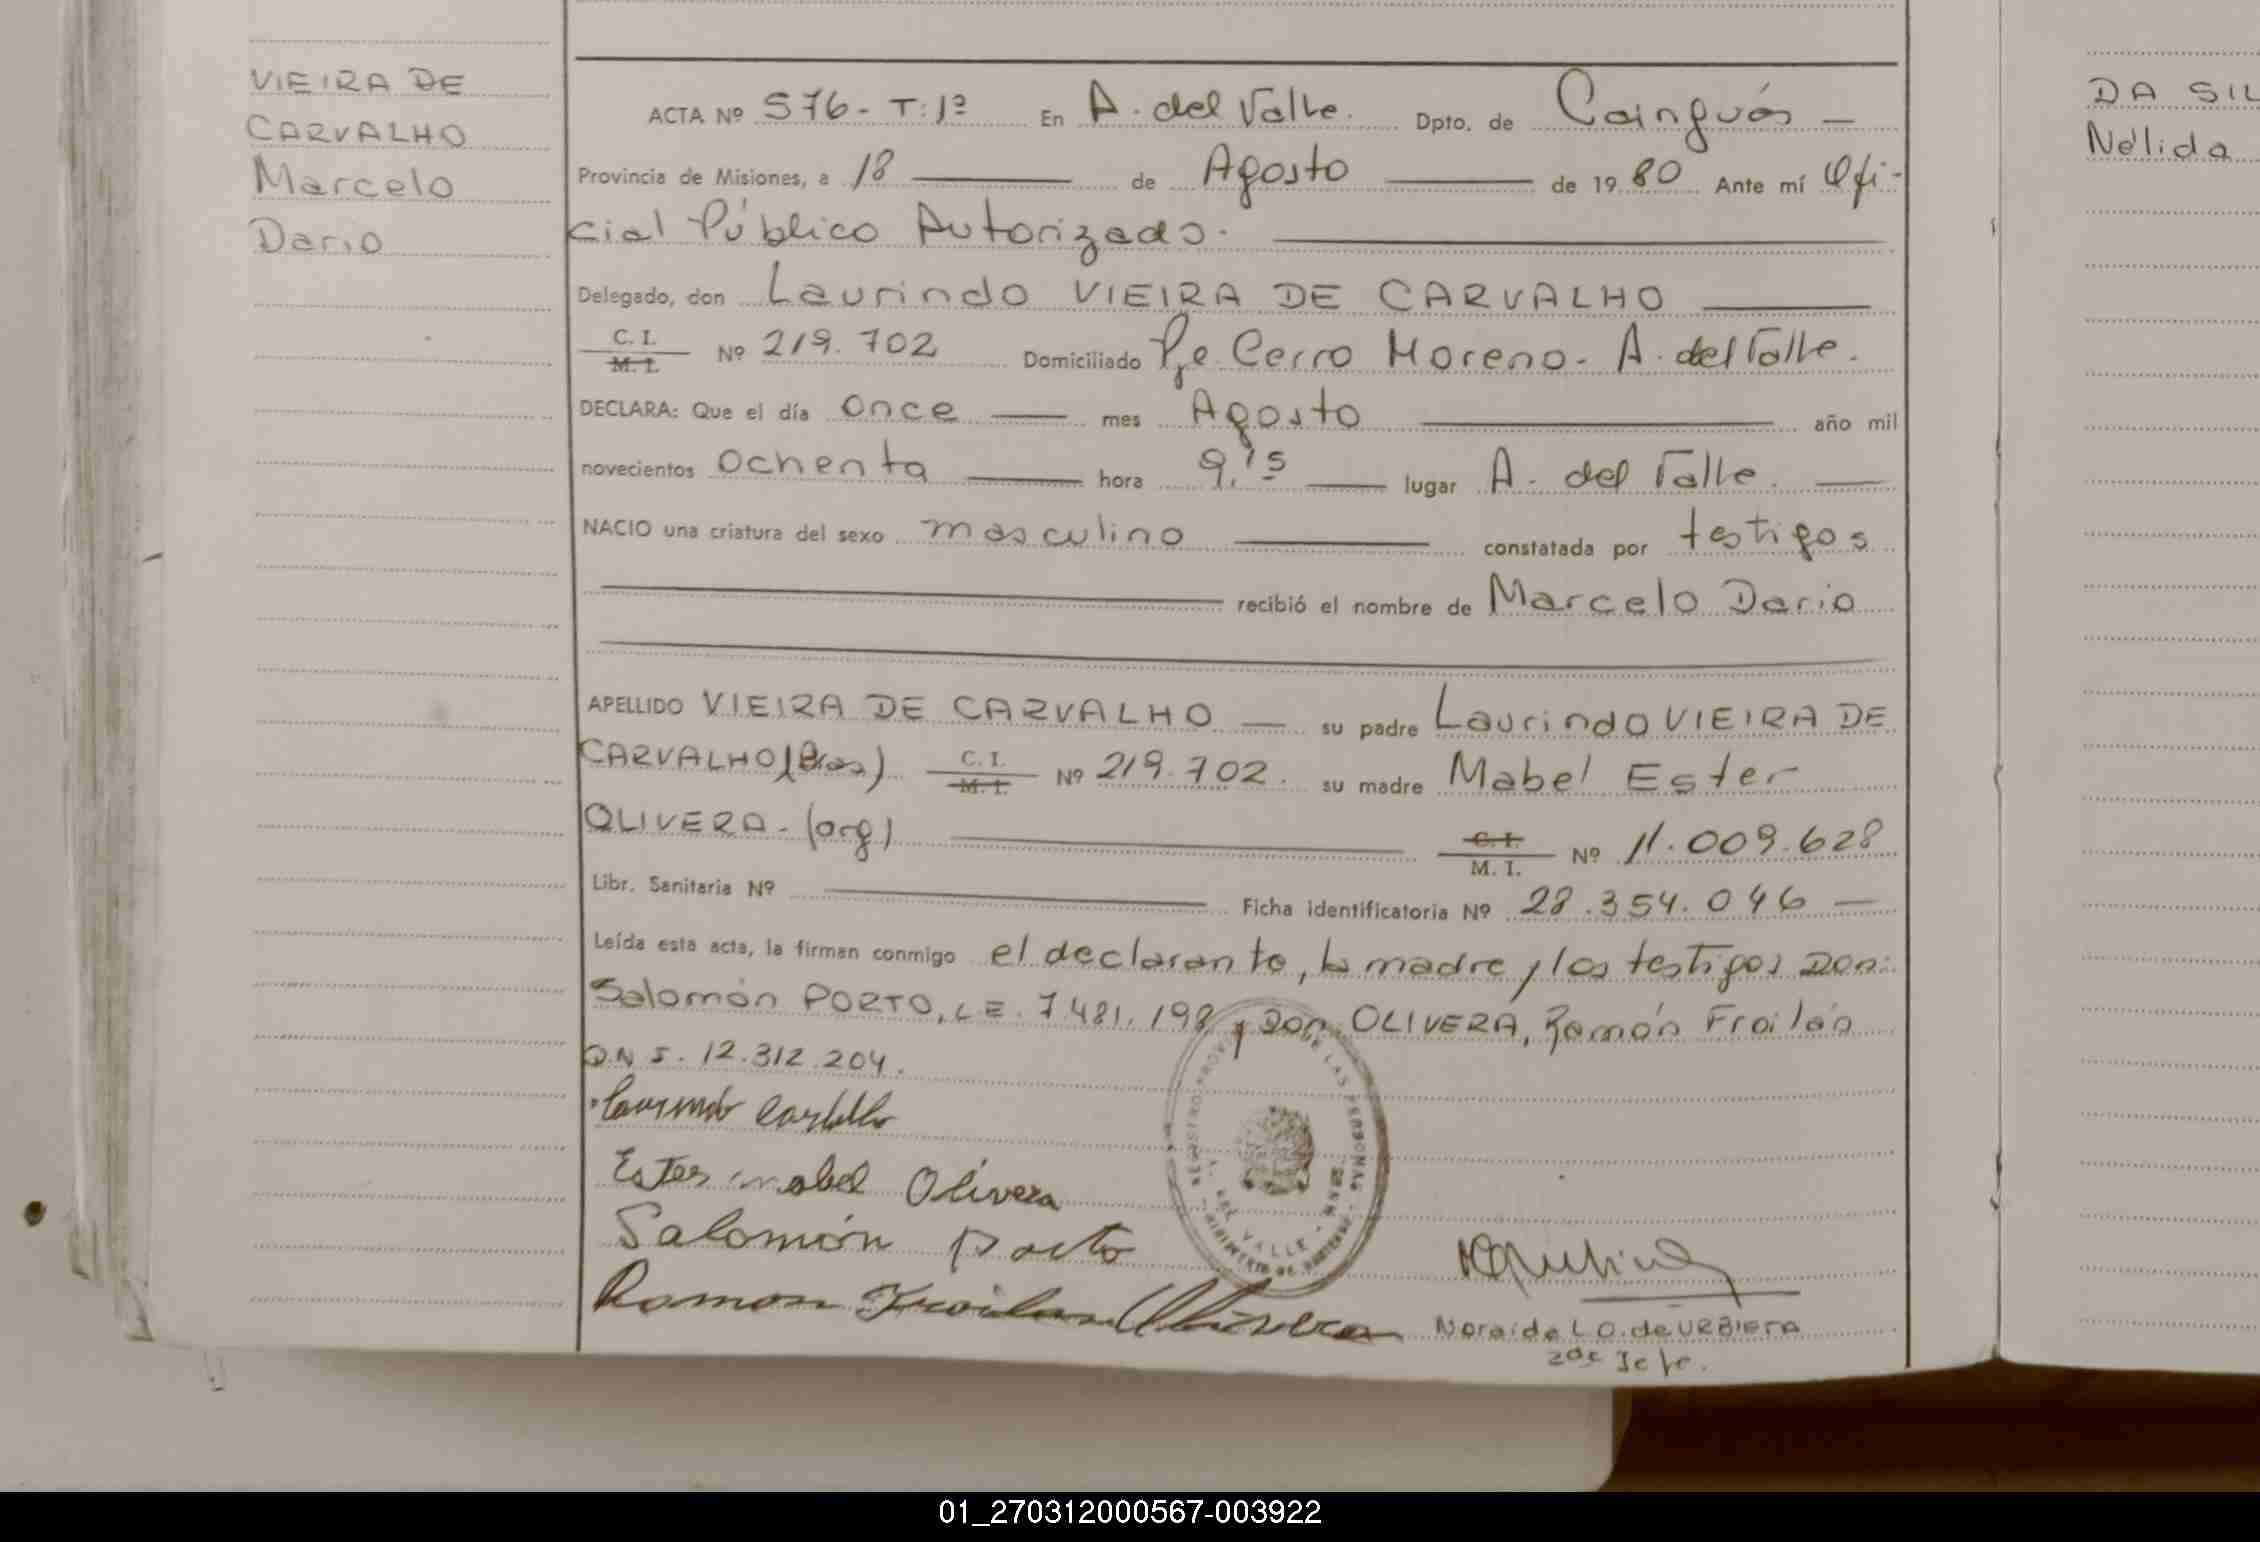 VIEIRA DE
CARVALHO
Marcelo
Dario
ACTA Nº 576- T:1º En A. del Valle. Dpto. de Cainguás -
Provincia de Misiones, a 18 de Agosto de 1980 Ante mí Ofi-
cial Público Autorizado.
Delegado, don Laurindo VIEIRA DE CARVALHO
C. I.
M. I.
Nº 219.702 Domiciliado Pje Cerro Moreno. A. del Valle.
DECLARA: Que el día once mes Agosto año mil
novecientos ochenta hora 9,15 lugar A. del Valle.
NACIO una criatura del sexo masculino constatada por testigos
recibió el nombre de Marcelo Dario
APELLIDO VIEIRA DE CARVALHO su padre Laurindo VIEIRA DE
CARVALHO (Bras) C. I. M. I. Nº 219.702. su madre Mabel Ester
OLIVERA - (arg) C. I. M. I. Nº 11.009.628
Libr. Sanitaria Nº Ficha identificatoria Nº 28.354.046 -
Leída esta acta, la firman conmigo el declarante, la madre y los testigos Don:
Salomón PORTO, L.E. 7.481.198 y Don OLIVERA, Ramón Froilán
D.N.I. 12.312.204.
Ester mabel Olivera
Salomón Porto
Ramon Froilan Olivera
DE LAS PERSONAS
A. DEL VALLE
Noraide L O. de URBIETA
2do Jefe.
DA SIL
Nélida
01_270312000567-003922